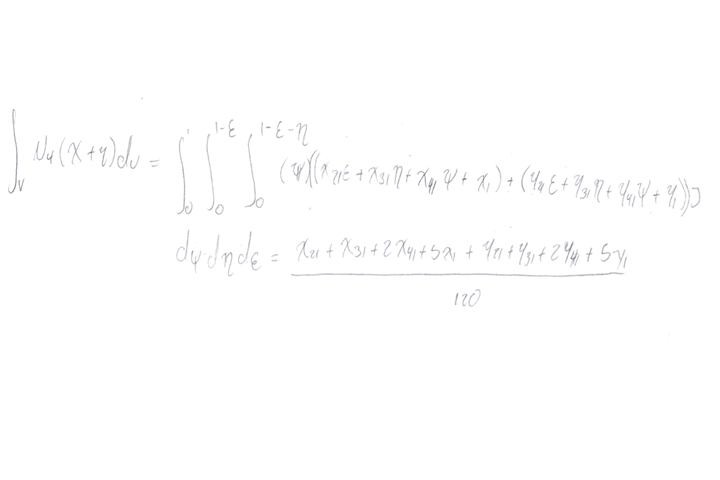 ∫_V N₄(x+y)dv = ∫₀¹ ∫₀^{1-ε} ∫₀^{1-ε-η} (ψ)((x₂₁ε + x₃₁η + x₄₁ψ + x₁) + (y₂₁ε + y₃₁η + y₄₁ψ + y₁))J
dψ·dηdε = (x₂₁ + x₃₁ + 2x₄₁ + 5x₁ + y₂₁ + y₃₁ + 2y₄₁ + 5y₁)/120